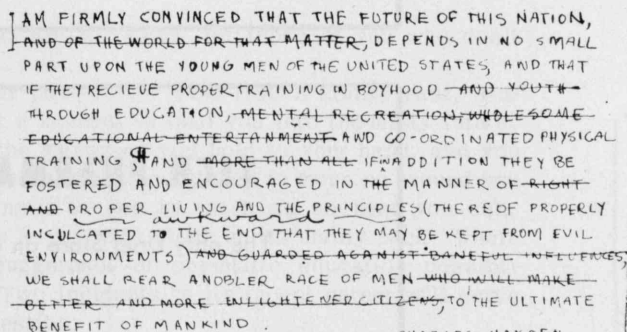 I AM FIRMLY CONVINCED THAT THE FUTURE OF THIS NATION,
AND OF THE WORLD FOR THAT MATTER, DEPENDS IN NO SMALL
PART UPON THE YOUNG MEN OF THE UNITED STATES, AND THAT
IF THEY RECIEVE PROPER TRAINING IN BOYHOOD AND YOUTH
THROUGH EDUCATION, MENTAL RECREATION, WHOLESOME
EDUCATIONAL ENTERTANMENT AND CO-ORDINATED PHYSICAL
TRAINING, AND MORE THAN ALL IF IN ADDITION THEY BE
FOSTERED AND ENCOURAGED IN THE MANNER OF RIGHT
AND PROPER LIVING AND THE PRINCIPLES (THEREOF PROPERLY
awkward
INCULCATED TO THE END THAT THEY MAY BE KEPT FROM EVIL
ENVIRONMENTS) AND GUARDED AGANIST BANEFUL INFLUENCES,
WE SHALL REAR A NOBLER RACE OF MEN WHO WILL MAKE
BETTER AND MORE ENLIGHTENED CITIZENS, TO THE ULTIMATE
BENEFIT OF MANKIND.